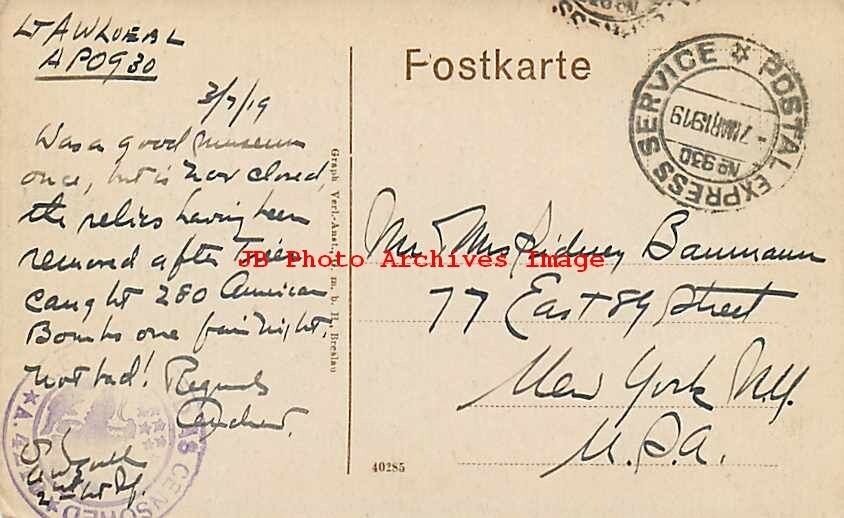 Lt A W Loeb
APO 930
3/7/19
Was a good museum
once, but is now closed,
the relics having been
removed after Trier
caught 280 American
Bombs one fair night.
Not bad! Regards
Andrew.
2nd Lt
CENSORED
A.
Graph. Verl.-Anst. m. b. H., Breslau
Postkarte
POSTAL EXPRESS SERVICE
No 930
7 MAR 1919
Mr & Mrs Sidney Baumann
77 East 89 Street
New York N.Y.
U.S.A.
40285
JB Photo Archives Image